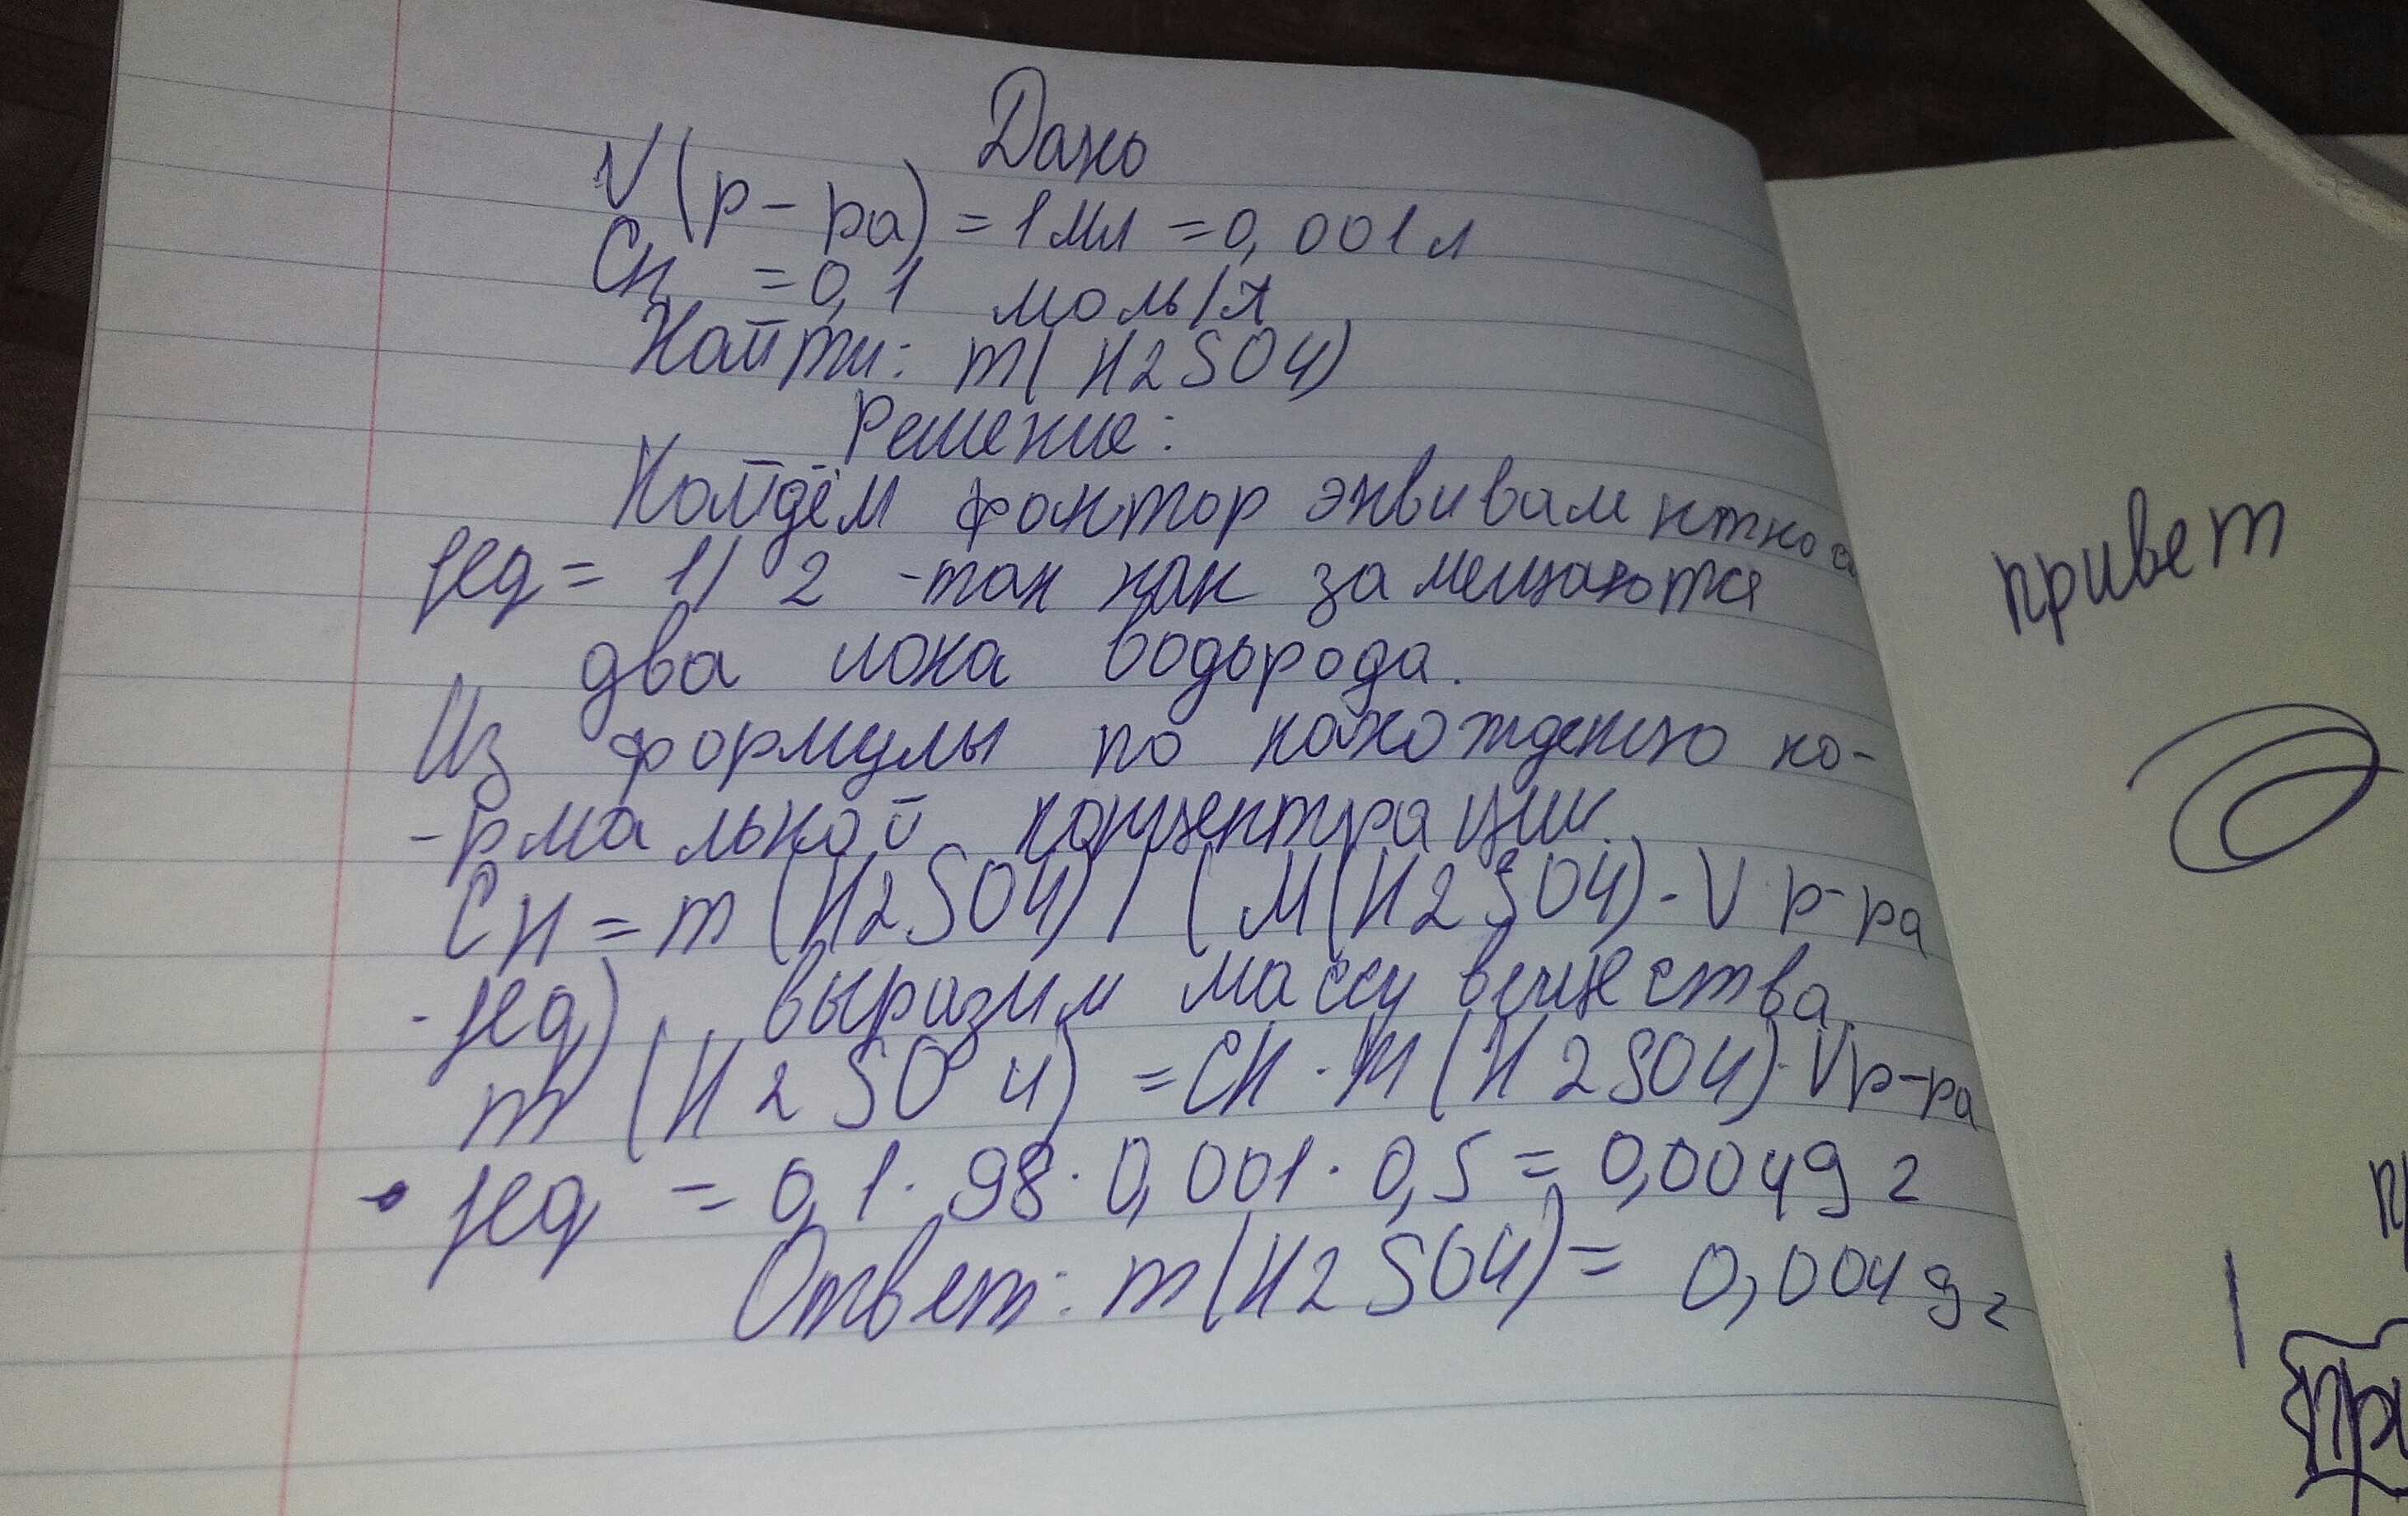 Дано
V (р-ра) = 1 мл = 0,001 л
Сн = 0,1 моль/л
Найти: m(H2SO4)
Решение:
Найдём фактор эквивалентноа
feq = 1/2 - так как замещаются
два иона водорода.
Из формулы по нахождению но-
-рмальной концентрации.
СН = m (H2SO4) / (M(H2SO4)·V р-ра
·feq), выразим массу вещества
m (H2SO4) = СН·M(H2SO4)·Vр-ра
· feq = 0,1·98·0,001·0,5 = 0,0049 г
Ответ: m(H2SO4) = 0,0049 г
привет